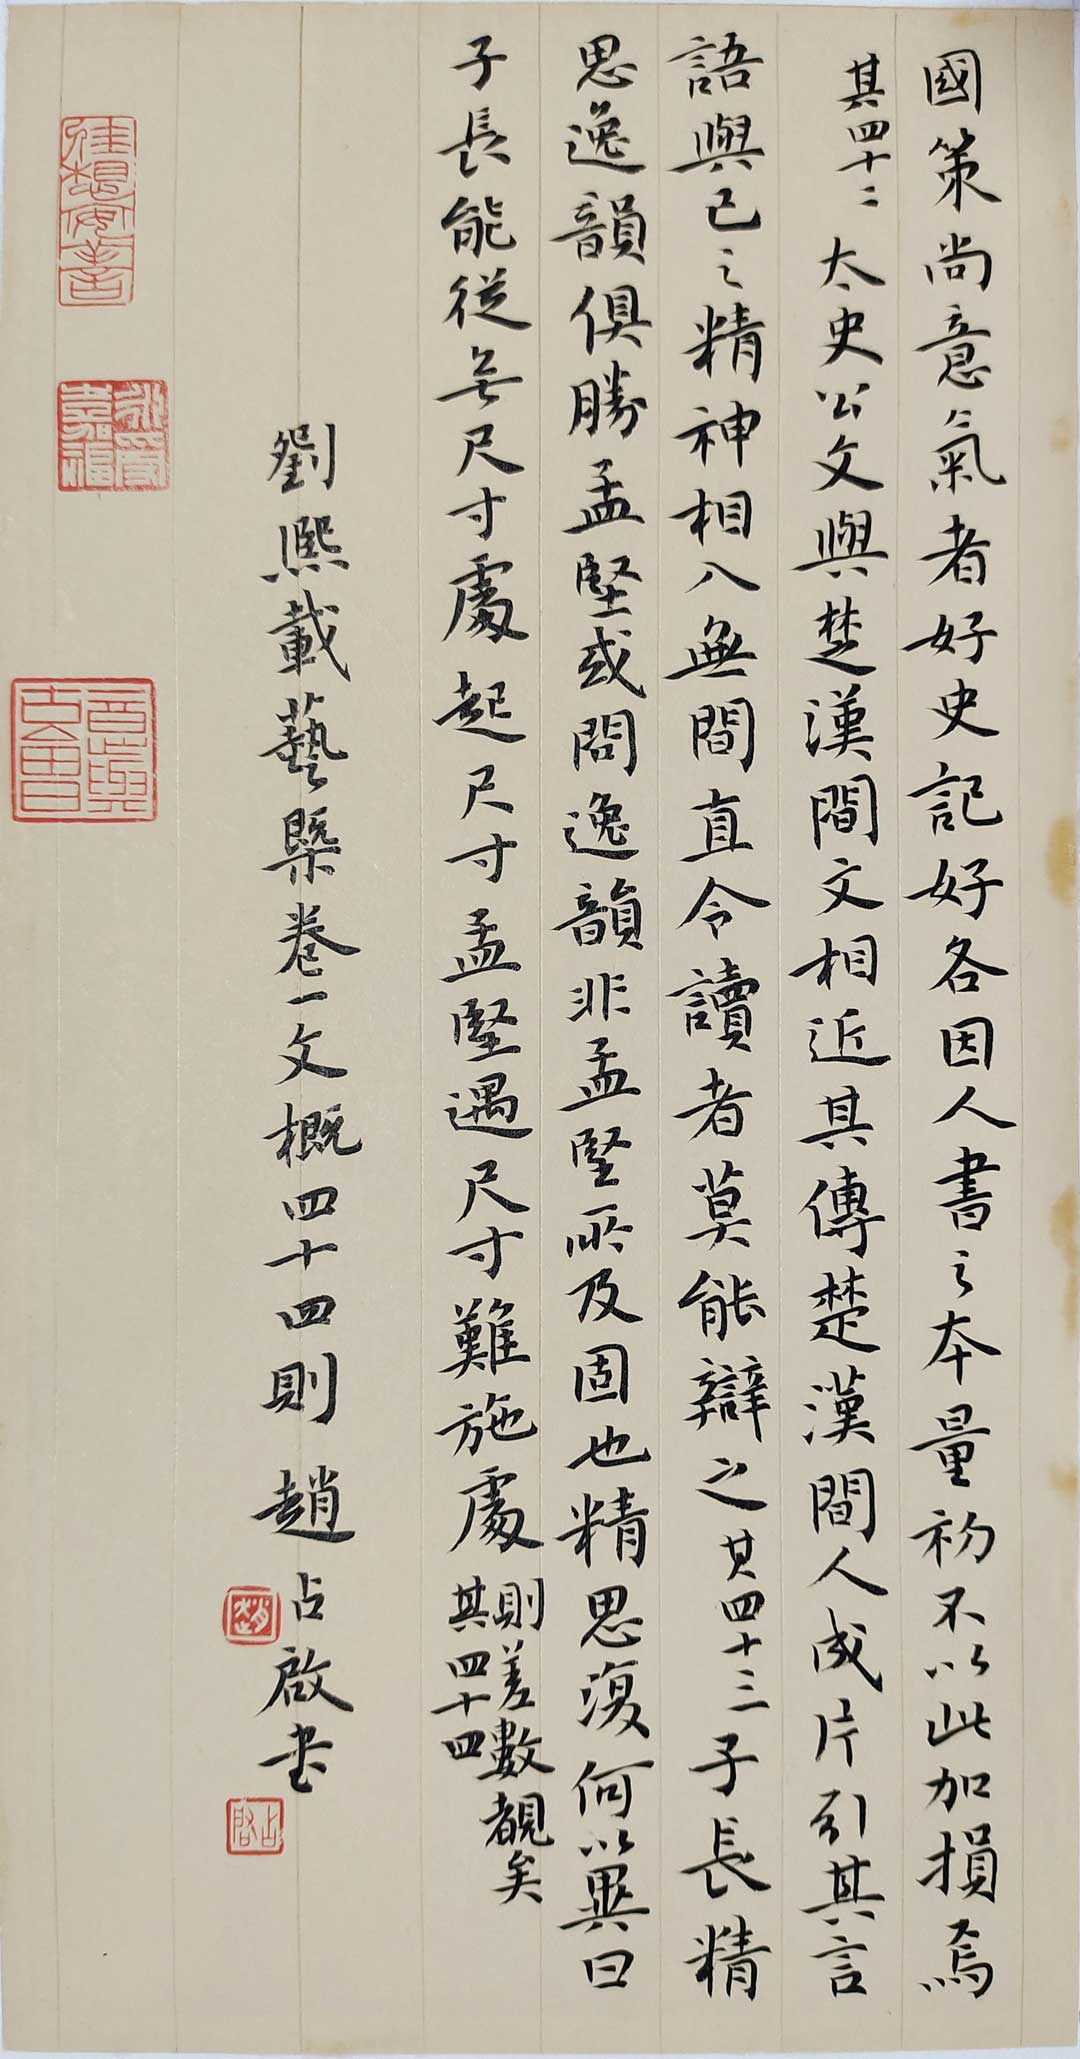 國策尚意氣者好史記好各因人書之本量初不以此加損焉
其四十二 太史公文與楚漢間文相近其傳楚漢間人成片引其言
語與己之精神相入無間直令讀者莫能辯之其四十三子長精
思逸韻俱勝孟堅或問逸韻非孟堅所及固也精思復何以異曰
子長能從无尺寸處起尺寸孟堅遇尺寸難施處則差數覩矣
其四十四
劉熙載藝槩卷一文概四十四則 趙占啟書
趙
占启
佳想安善
永受嘉福
意與古會